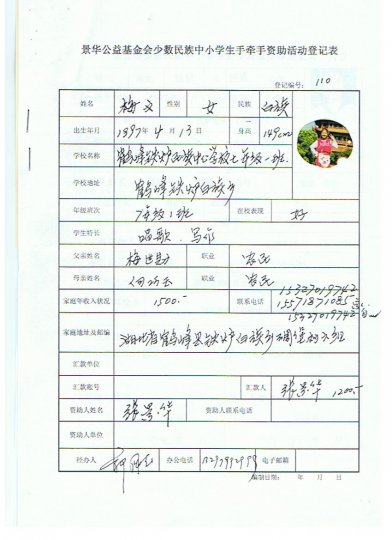 景华公益基金会少数民族中小学生手牵手资助活动登记表
登记编号: 110
姓名 梅文 性别 女 民族 白族
出生年月 1997年4月13日 身高 149cm
学校名称 鹤峰铁炉白族中心学校七年级一班
学校地址 鹤峰铁炉白族乡
年级班次 7年级1班 在校表现 好
学生特长 唱歌、写作
父亲姓名 梅 职业 农民
母亲姓名 职业 农民
家庭年收入状况 1500.- 联系电话 15327019742
15571871085
15327019742
家庭地址及邮编 湖北省鹤峰县铁炉白族乡
汇款单位
汇款账号 汇款人 张景华 1200.-
资助人姓名 张景华 资助人联系电话
资助人单位
经办人 办公电话 电子邮箱
编制日期: 年 月 日